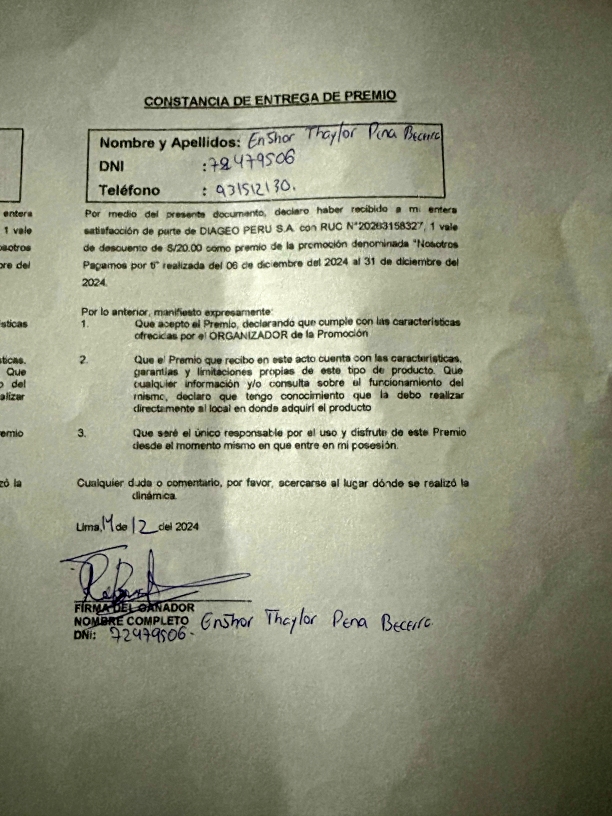 CONSTANCIA DE ENTREGA DE PREMIO
Nombre y Apellidos: Enshor Thaylor Pena Becerra
DNI : 72479506
Teléfono : 931512130.
Por medio del presente documento, declaro haber recibido a mi entera
satisfacción de parte de DIAGEO PERU S.A. con RUC N°20263158327, 1 vale
de descuento de S/20.00 como premio de la promoción denominada "Nosotros
Pagamos por ti" realizada del 06 de diciembre del 2024 al 31 de diciembre del
2024.
Por lo anterior, manifiesto expresamente:
1. Que acepto el Premio, declarando que cumple con las características
ofrecidas por el ORGANIZADOR de la Promoción
2. Que el Premio que recibo en este acto cuenta con las características,
garantías y limitaciones propias de este tipo de producto. Que
cualquier información y/o consulta sobre el funcionamiento del
mismo, declaro que tengo conocimiento que la debo realizar
directamente al local en donde adquirí el producto
3. Que seré el único responsable por el uso y disfrute de este Premio
desde el momento mismo en que entre en mi posesión.
Cualquier duda o comentario, por favor, acercarse al lugar dónde se realizó la
dinámica.
Lima, 14 de 12 del 2024
FIRMA DEL GANADOR
NOMBRE COMPLETO Enshor Thaylor Pena Becerra
DNI: 72479506.
entera
1 vale
osotros
bre del
ísticas
sticas,
Que
o del
alizar
remio
zó la